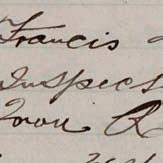 Francis
Inspec
Iron R